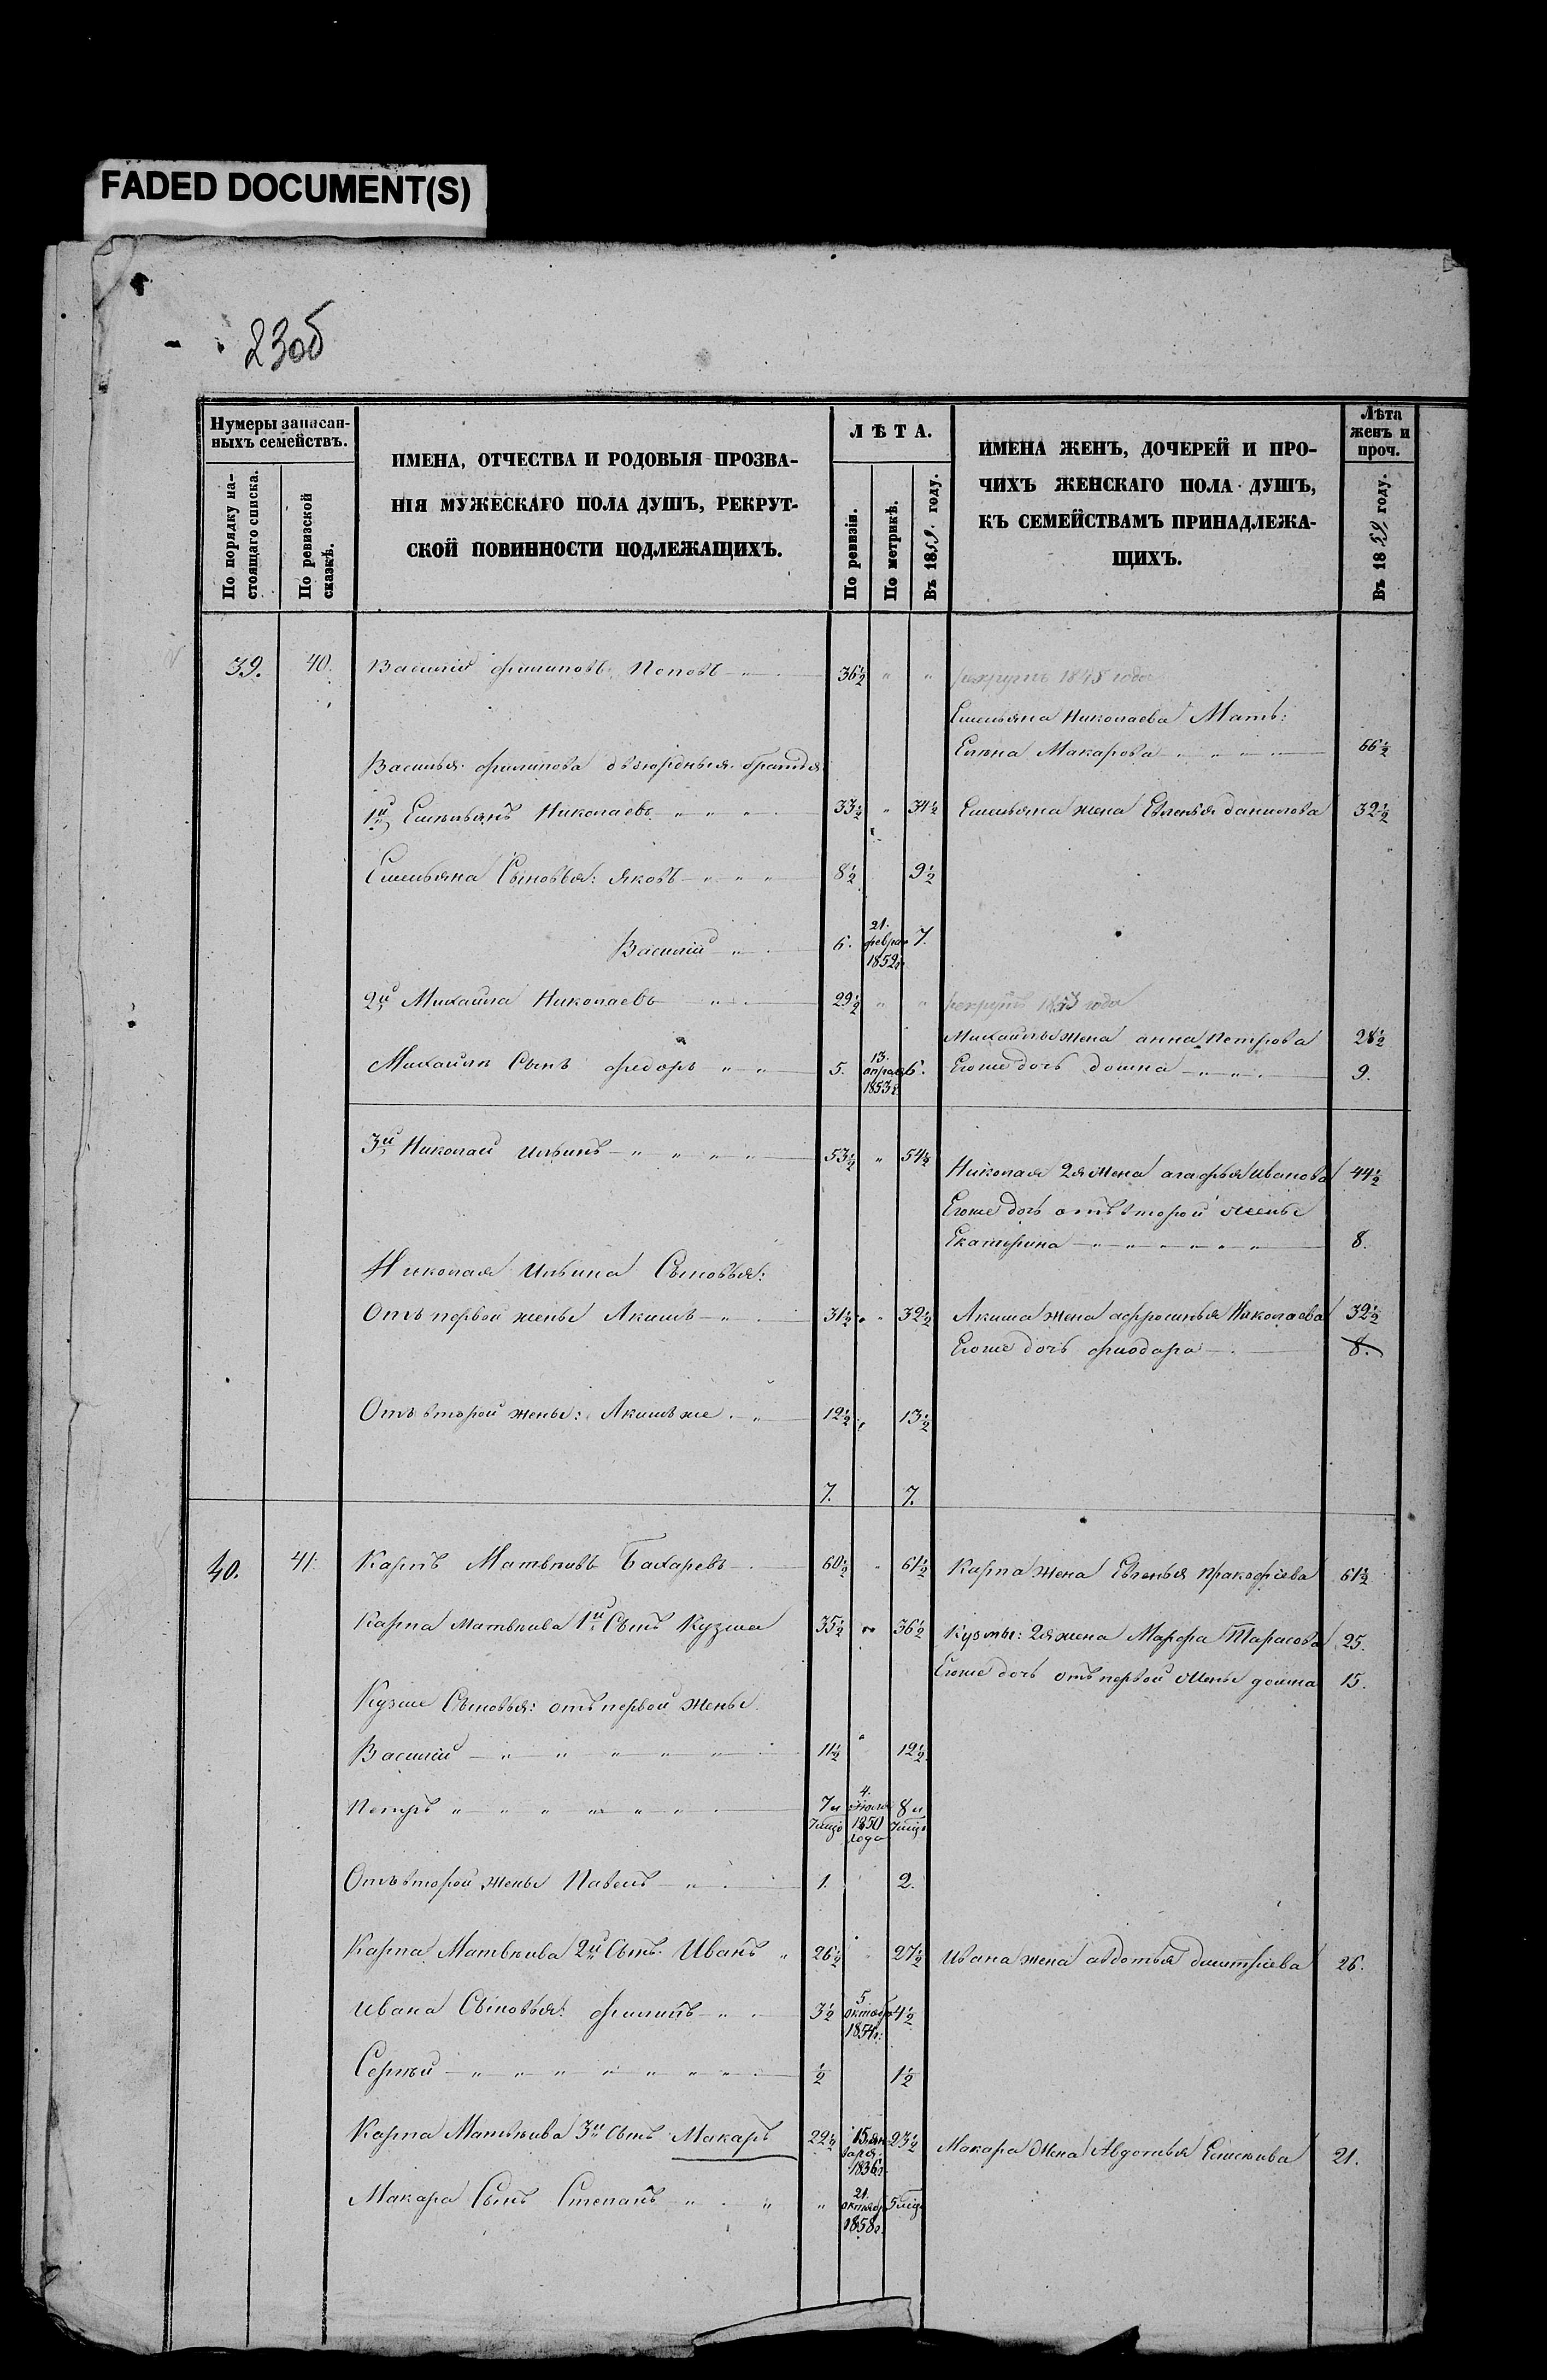 FADED DOCUMENT(S)
23об
Нумеры записан-
ныхъ семействъ.
По порядку на-
стоящаго списка.
По ревизской
сказкѣ.
ИМЕНА, ОТЧЕСТВА И РОДОВЫЯ ПРОЗВА-
НІЯ МУЖЕСКАГО ПОЛА ДУШЪ, РЕКРУТ-
СКОЙ ПОВИННОСТИ ПОДЛЕЖАЩИХЪ.
ЛѢТА.
По ревизіи.
По метрикѣ.
Въ 1859 году.
ИМЕНА ЖЕНЪ, ДОЧЕРЕЙ И ПРО-
ЧИХЪ ЖЕНСКАГО ПОЛА ДУШЪ,
КЪ СЕМЕЙСТВАМЪ ПРИНАДЛЕЖА-
ЩИХЪ.
Лѣта
женъ и
проч.
Въ 1859 году.
39. 40. Василій Филиповъ Поповъ 36½ " " рекрутъ 1848 года
Емельяна Николаева Мать:
Елена Макарова 66½
Василья Филипова двоюродныя братья
1й Емельянъ Николаевъ 33½ " 34½ Емельяна жена Евгенья Данилова 32½
Емельяна Сыновья: Яковъ 8½ 9½
Василій 6. 21. февра 1852г. 7.
2й Михаила Николаевъ 29½ " " рекрутъ 1853 года
Михаилы жена анна Петрова 28½
Михаилы Сынъ Федоръ 5. 13. апрел 1853г. 6. Егоже дочь домна 9.
3й Николай Ильинъ 53½ " 54½
Николая 2я жена агафья Иванова 44½
Егоже дочь отъ второй жены
Екатерина 8.
Николая Ильина Сыновья:
Отъ первой жены Акимъ 31½ " 32½ Акима жена афросинья Николаева 32½
Егоже дочь Фиодора 8.
Отъ второй жены: Акимъ же 12½ 13½
7. 7.
40. 41. Карпъ Матвѣивъ Бахаревъ 60½ 61½ Карпа жена Евгенья Пракофіева 61½
Карпа Матвѣива 1й Сынъ Кузма 35½ " 36½ Кузмы: 2я жена Марфа Тарасова 25.
Егоже дочь отъ первой жены домна 15.
Кузме Сыновья: отъ первой жены
Василій 11½ " 12½
Петръ 7 и 7мцо 4. Июля 1850 года 8 и 7мцо
Отъ второй жены Павелъ 1. 2.
Карпа Матвѣива 2й Сынъ Иванъ 26½ " 27½ Ивана жена авдотья дмитріева 26.
Ивана Сыновья: Филипъ 3½ 5 октяб 1854г. 4½
Сергей ½ 1½
Карпа Матвѣива 3й Сынъ Макаръ 22½ 15. ян варя 1836г. 23½ Макара Жена Авдотья Елисѣива 21.
Макара Сынъ Степанъ " 21. октябр 1858г. 5мцо